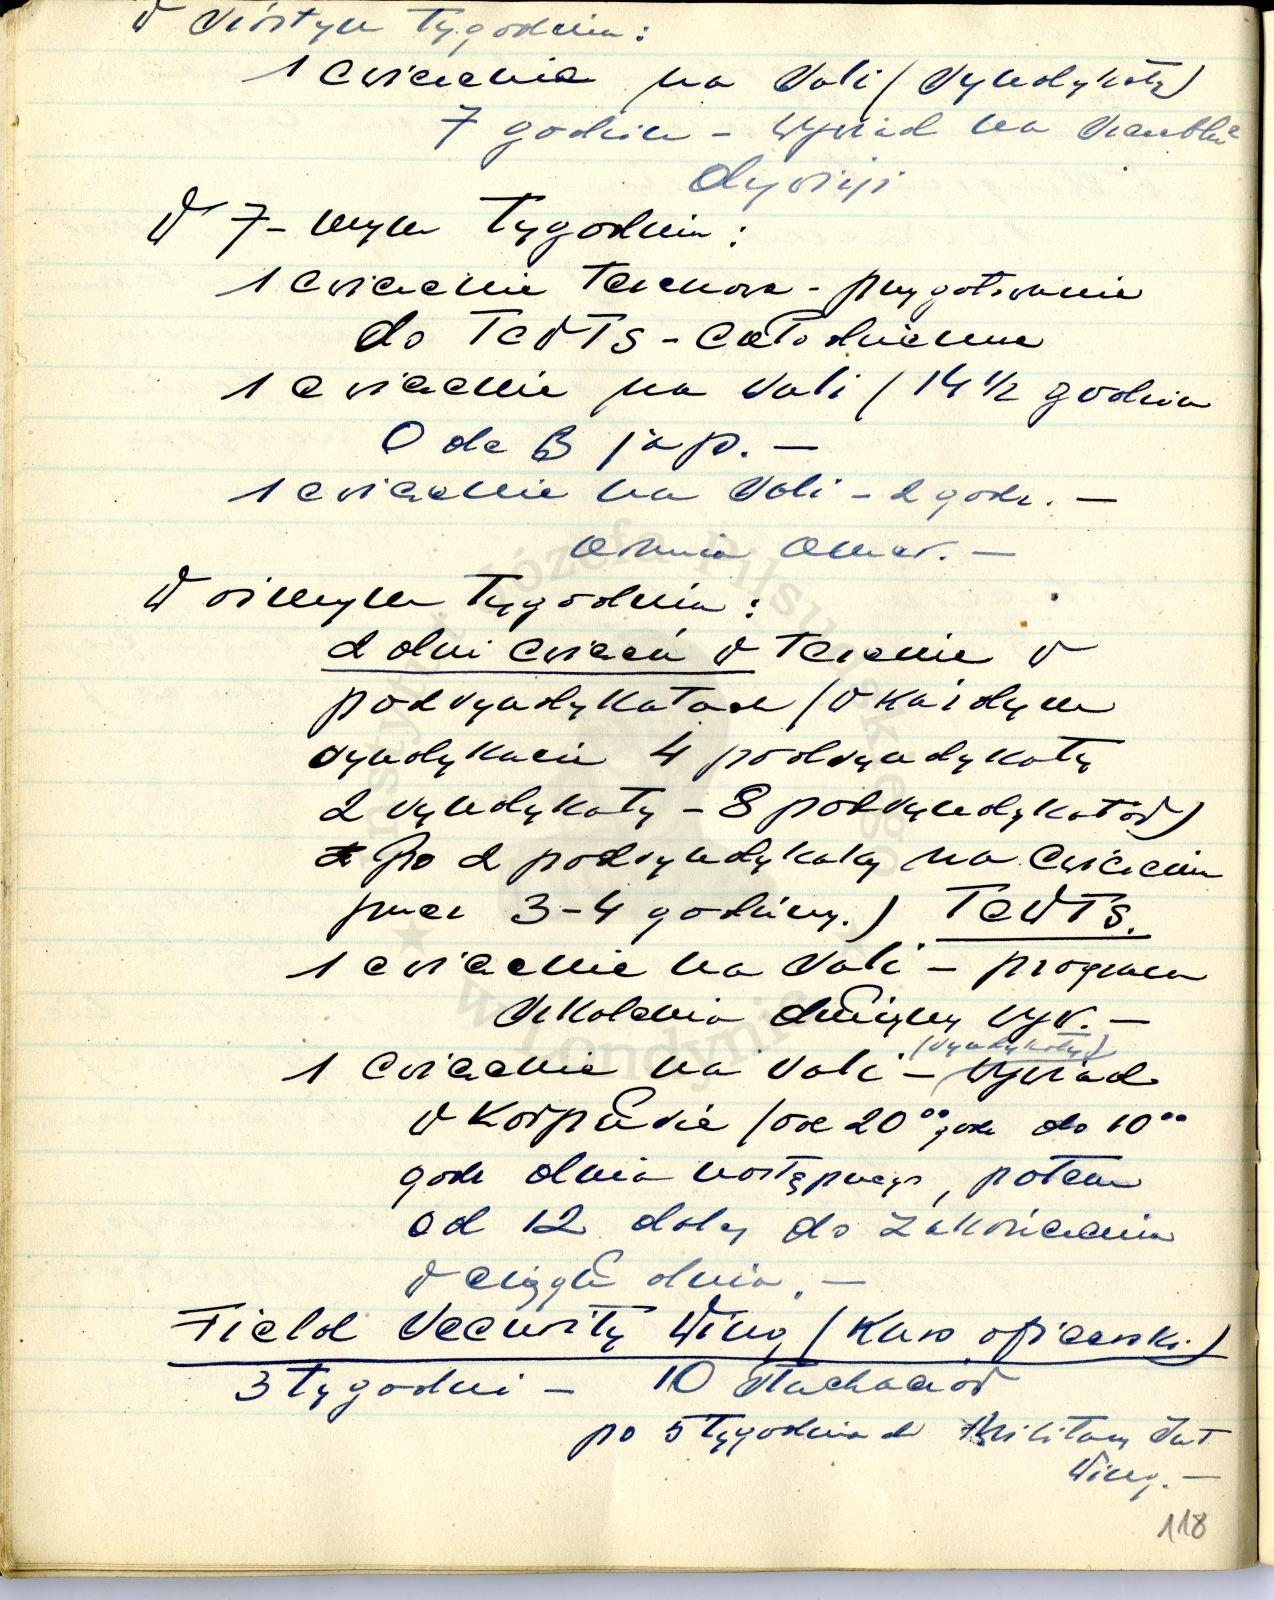 W szóstym tygodniu:
1 ćwiczenie na sali (syndykaty)
7 godzin - wywiad na szczeblu
dywizji
W 7-mym tygodniu:
1 ćwiczenie terenowe - przygotowanie
do TEWTS - całodzienne
1 ćwiczenie na sali (14 1/2 godzin
O de B jap. -
1 ćwiczenie na sali - 2 godz. -
Armia Amer. -
W ósmym tygodniu:
2 dni ćwiczeń w terenie w
podsyndykatach (w każdym
syndykacie 4 podsyndykaty
2 syndykaty - 8 podsyndykatów)
Po 2 podsyndykaty na ćwiczeniu
przez 3-4 godziny.) TEWTS.
1 ćwiczenie na sali - program
szkolenia drużyny wyw. -
(syndykaty)
1 ćwiczenie na sali - wywiad
w Korpusie (od 20°° godz do 10°°
godz dnia następnego, potem
od 12 doby do zakończenia
w ciągu dnia. -
Field Security Wing (Kurs oficerski.)
3 tygodni - 10 słuchaczów
po 5 tygodniach Military Int
Wing. -
118
Instytut Józefa Piłsudskiego
w Londynie